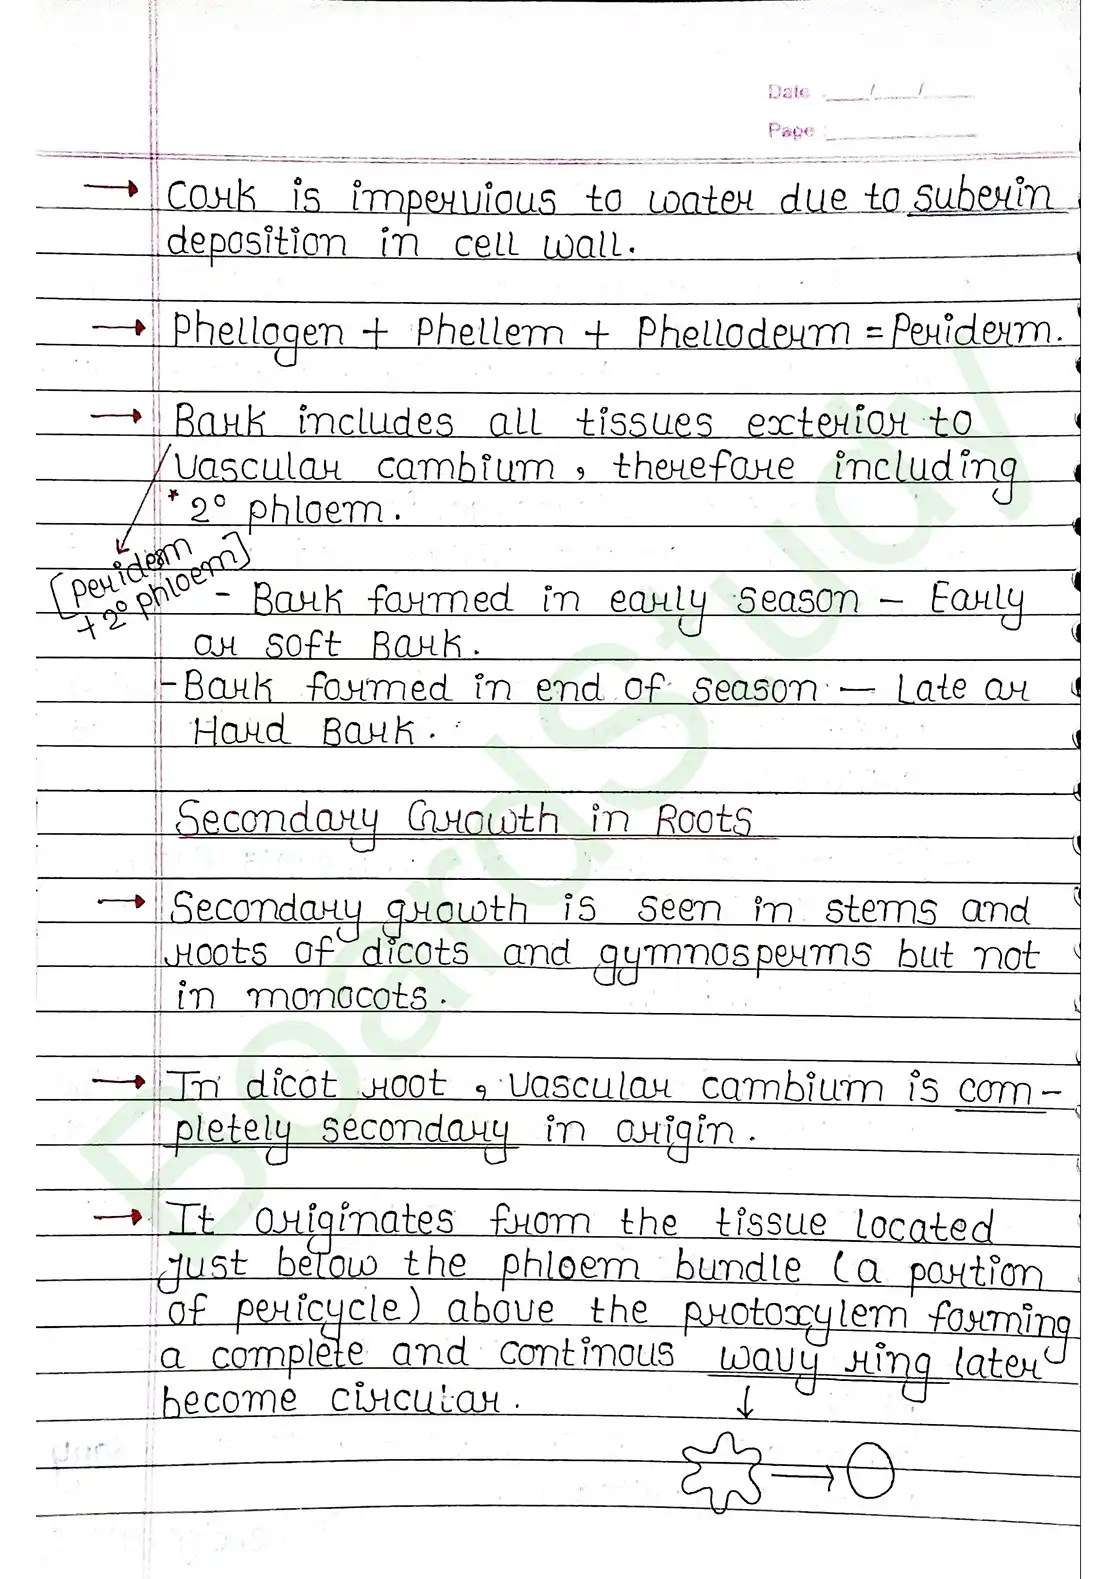 Date : ___/___/___
Page : ___
→ Cork is impervious to water due to suberin
deposition in cell wall.
→ Phellogen + Phellem + Phelloderm = Periderm.
→ Bark includes all tissues exterior to
vascular cambium, therefore including
* 2° phloem.
[periderm
+ 2° phloem]
- Bark formed in early season – Early
or soft Bark.
- Bark formed in end of season – Late or
Hard Bark.
Secondary Growth in Roots
→ Secondary growth is seen in stems and
roots of dicots and gymnosperms but not
in monocots.
→ In dicot root, vascular cambium is com-
pletely secondary in origin.
→ It originates from the tissue located
just below the phloem bundle (a portion
of pericycle) above the protoxylem forming
a complete and continous wavy ring later
become circular.
BoardStudy